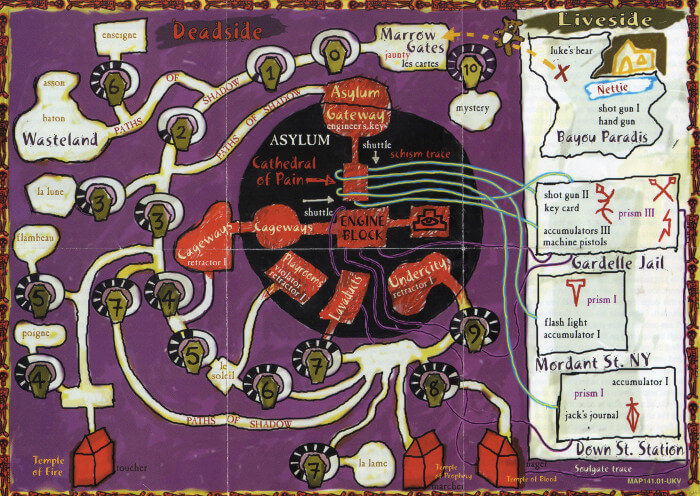 Deadside
Liveside
enseigne
6
1
0
Marrow
Gates
jaunty
les cartes
10
mystery
luke's bear
Nettie
shot gun I
hand gun
Bayou Paradis
asson
baton
Wasteland
PATHS OF SHADOW
2
PATHS OF SHADOW
Asylum
Gateway
engineer's keys
ASYLUM
shuttle
schism trace
Cathedral
of Pain
shuttle
la lune
3
3
Cageways
retractor I
Cageways
ENGINE
BLOCK
shot gun II
key card
prism III
accumulators III
machine pistols
Gardelle Jail
flambeau
5
7
4
Playrooms
isolator
retractor I
Lavaducts
Undercity
retractor I
prism I
flash light
accumulator I
Mordant St. NY
poigne
4
5
le
soleil
6
7
9
8
accumulator I
prism I
jack's journal
Down St. Station
PATHS OF SHADOW
Temple
of Fire
toucher
7
la lame
Temple
of Prophecy
marcher
nager
Temple of Blood
Soulgate trace
MAP141.01-UKV